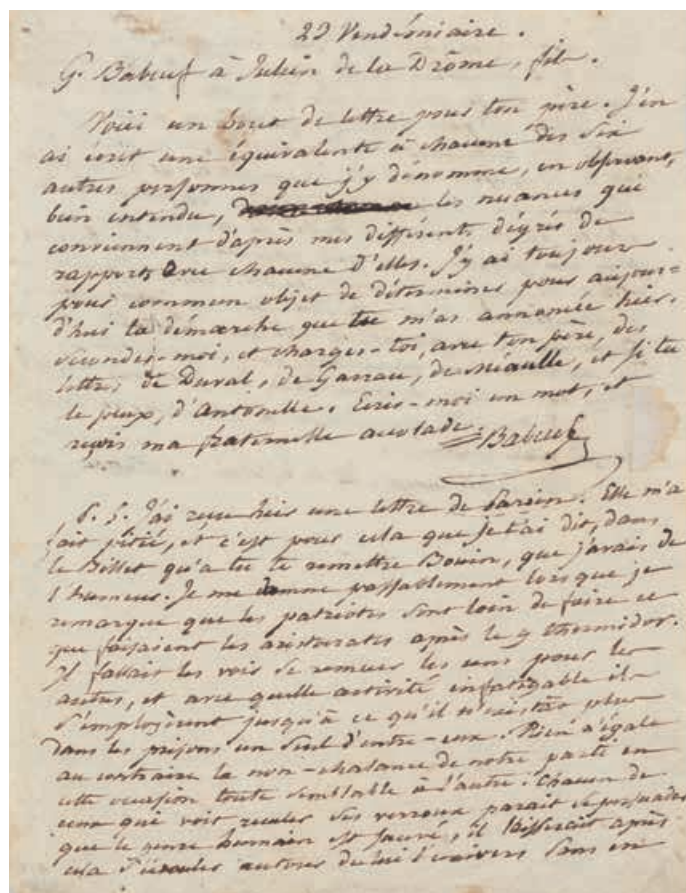 23 Vendémiaire.
G. Babeuf à Julien de la Drôme, fils.
Voici un bout de lettre pour ton père. J'en
ai écrit une équivalente à chacune des six
autres personnes que j'y dénomme, en observant,
bien entendu, les nuances qui
conviennent d'après mes différents dégrés de
rapports avec chacune d'elles. J'y ai toujours
pour commun objet de déterminer pour aujour-
d'hui la démarche que tu m'as annoncée hier.
secondes-moi, et charges-toi, avec ton père, des
lettres de Duval, de Garrau, de Niaulle, et si tu
le peux, d'Antonelle. Ecris-moi un mot, et
reçois ma fraternelle accolade. Babeuf
P. S. J'ai reçu hier une lettre de Parein. Elle m'a
fait pitié, et c'est pour cela que je t'ai dit, dans
le Billet qu'a dû te remettre Bouin, que j'avais de
l'humeur. Je me damne passablement lorsque je
remarque que les patriotes sont loin de faire ce
que faisaient les aristocrates après le 9 thermidor.
Il fallait les voir se remuer les uns pour les
autres, et avec quelle activité infatigable ils
s'employèrent jusqu'à ce qu'il n'existât plus
dans les prisons un seul d'entre-eux. Rien n'égale
au contraire la non-chalance de notre parti en
cette occasion toute semblable à l'autre. Chacun de
ceux qui voit reculer ses verroux parait se persuader
que le genre humain est sauvé, il laisserait après
cela s'écrouler autour de lui l'univers sans en